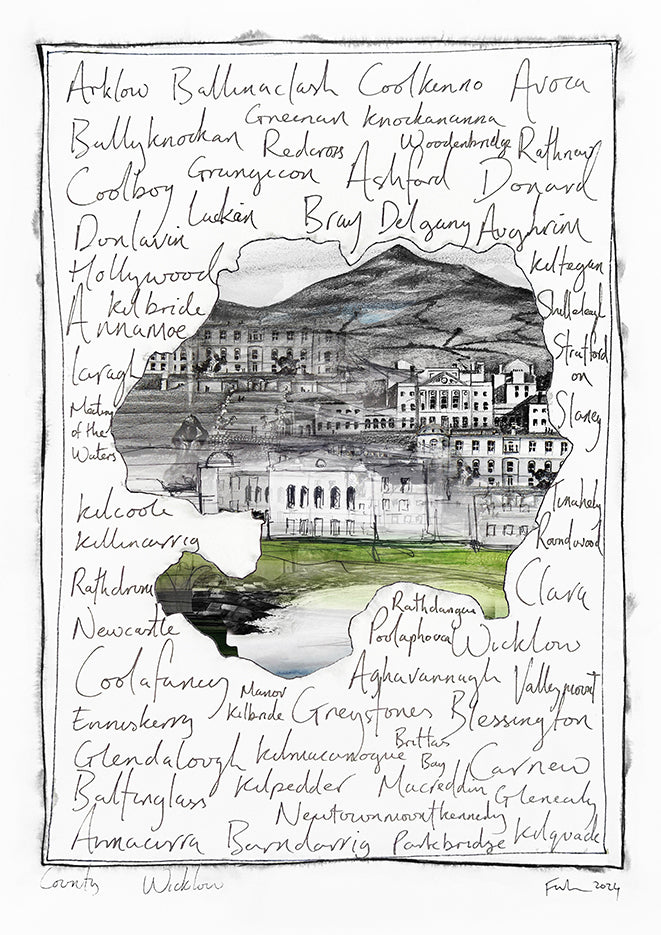 Arklow Ballinaclash Coolkenno Avoca
Greenan Knockananna
Ballyknockan Redcross Woodenbridge Rathnew
Coolboy Grangecon Ashford Donard
Donlavin Lackan Bray Delgany Aughrim
Hollywood Kiltegan
Kilbride Shillelagh
Annamoe Stratford
on
Slaney
Laragh
Meeting
of the
Waters
Kilcoole Tinahely
Killincarrig Roundwood
Rathdrum Clara
Rathdangan
Newcastle Poolaphouca Wicklow
Coolafancy Aghavannagh Valleymount
Manor
Kilbride
Enniskerry Greystones Blessington
Glendalough Kilmacanogue Brittas
Bay
Carnew
Baltinglass Kilpedder Macreddin Glenealy
Newtownmountkennedy
Annacurra Barndarrig Parkbridge Kilquade
County Wicklow
2024